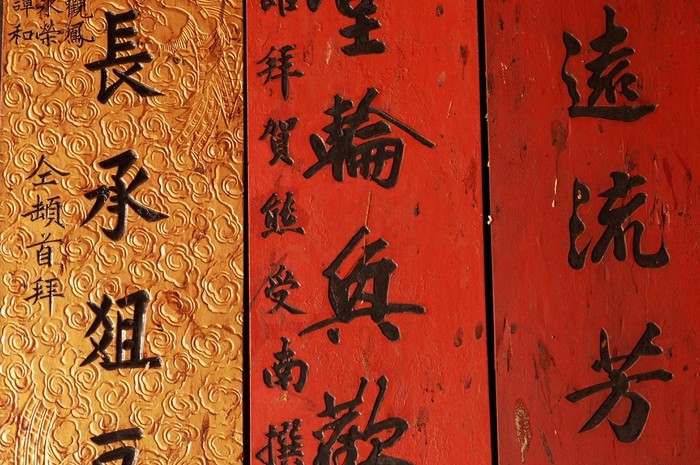 遠流芳
輪奐歡
拜賀熊受南撰
長承狙
觀鳳
永榮
譚和
仝頓首拜